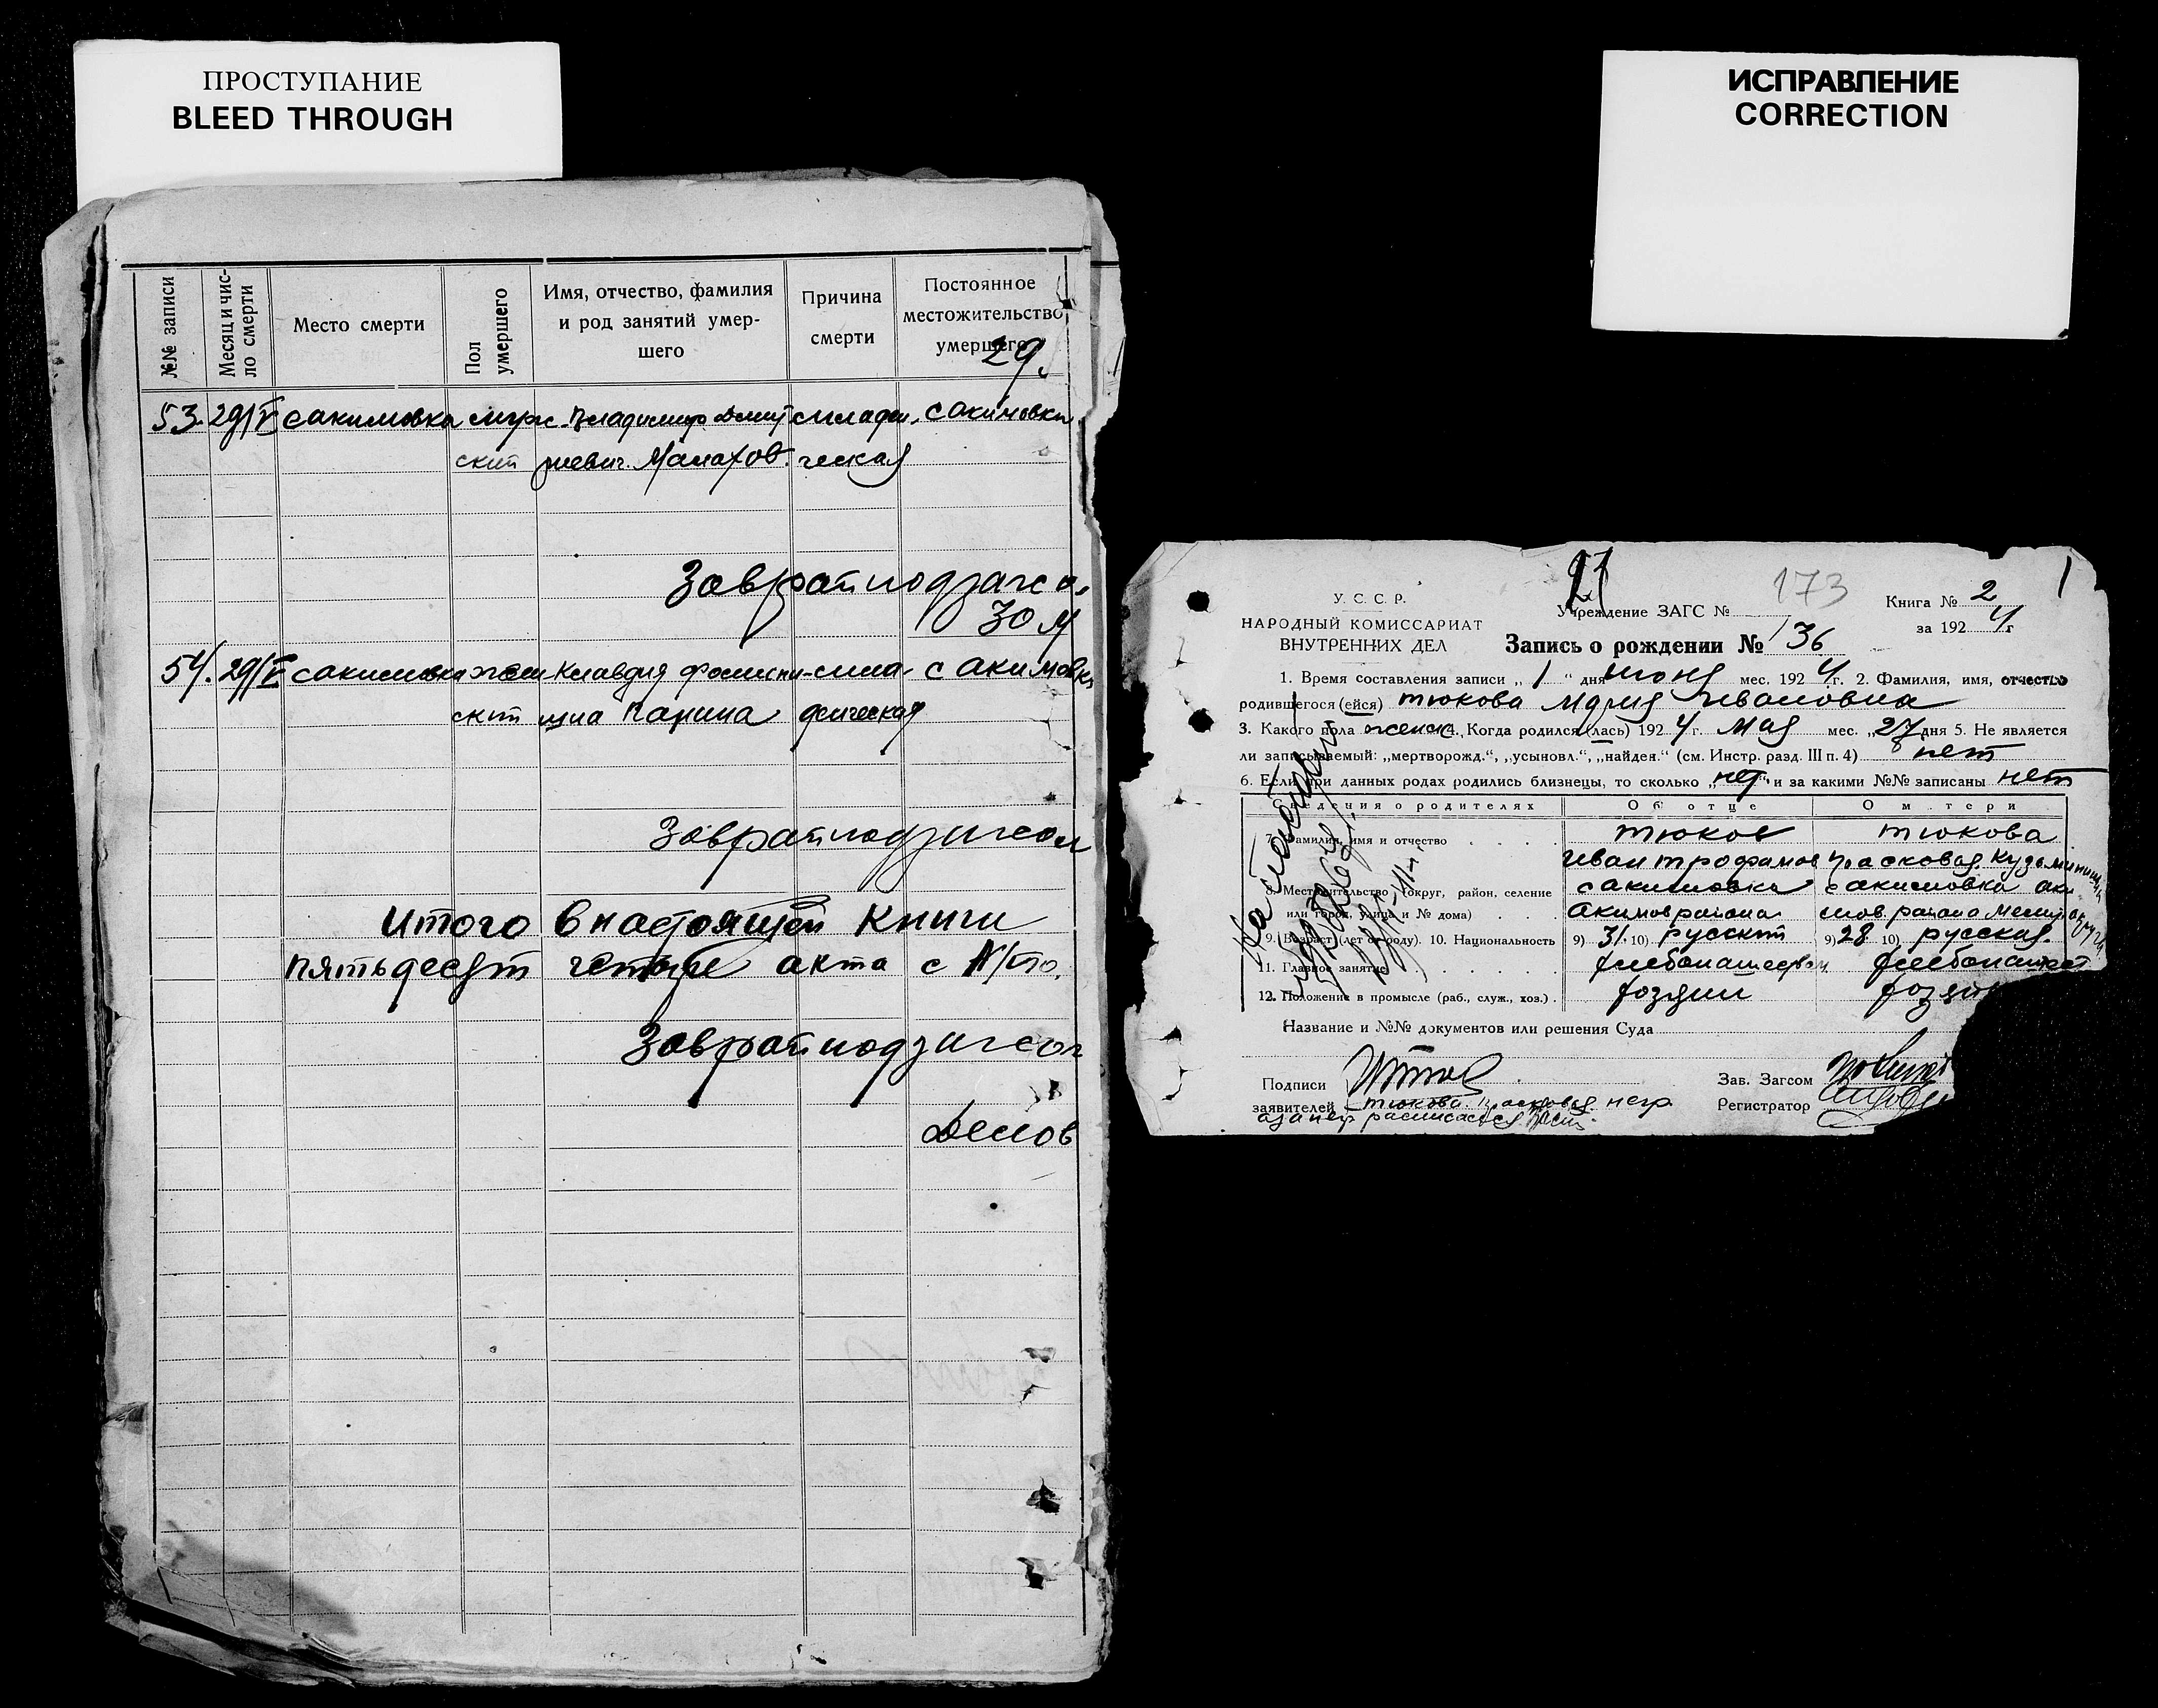 ПРОСТУПАНИЕ
BLEED THROUGH
ИСПРАВЛЕНИЕ
CORRECTION
№№ записи
Месяц и чис-
ло смерти
Место смерти
Пол
умершего
Имя, отчество, фамилия
и род занятий умер-
шего
Причина
смерти
Постоянное
местожительство
умершего
29.
53. 29/V сакимовка муж- Владимир Дмит с акимовка
ский риевич. Малахов. ческая
30 м
54. 29/V сакимовка жен Клавдия с акимовка
ский
Итого в настоящей Книги
пятьдесят четыре акта с №/по.
Демов
У. С. С. Р.
НАРОДНЫЙ КОМИССАРИАТ
ВНУТРЕННИХ ДЕЛ
Учреждение ЗАГС № 173
Книга № 2
за 1924 г
Запись о рождении № 136
1. Время составления записи „ 1 “ дня июня мес. 1924 г. 2. Фамилия, имя, отчество
родившегося (ейся) Тюкова Мария Ивановна
3. Какого пола женск 4. Когда родился (лась) 1924 г. Мая мес. „27 дня 5. Не является
ли записываемый: „мертворожд.“, „усыновл.“, „найден.“ (см. Инстр. разд. III п. 4) нет
6. Если при данных родах родились близнецы, то сколько „нет“ и за какими №№ записаны нет
Сведения о родителях Об отце О матери
7. Фамилия, имя и отчество . . . . Тюков Тюкова
Иван Трофимов Прасковая Кузьминична
8. Местожительство (округ, район, селение с акимовка с акимовка аки
или город, улица и № дома) . . . Акимов района мов. района
9. Возраст (лет от роду). 10. Национальность 9) 31. 10) русский 9) 28 10) русская.
11. Главное занятие . . . . . хлебопашество
12. Положение в промысле (раб., служ., хоз.) . хозяин
Название и №№ документов или решения Суда
Подписи
заявителей Тюкова Прасковая негр.
а за негр расписался
Зав. Загсом
Регистратор